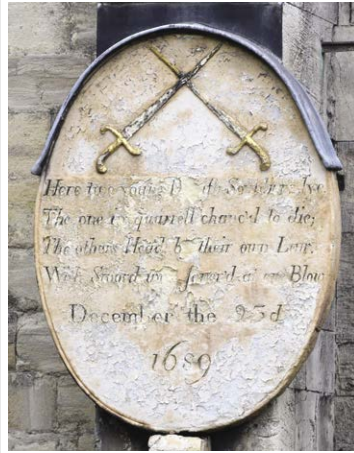 Here two young Soldiers lye,
The one in quarrell chanc'd to die;
The others Head, by their own Law,
With Sword was sever'd at one Blow
December the 23d
1689